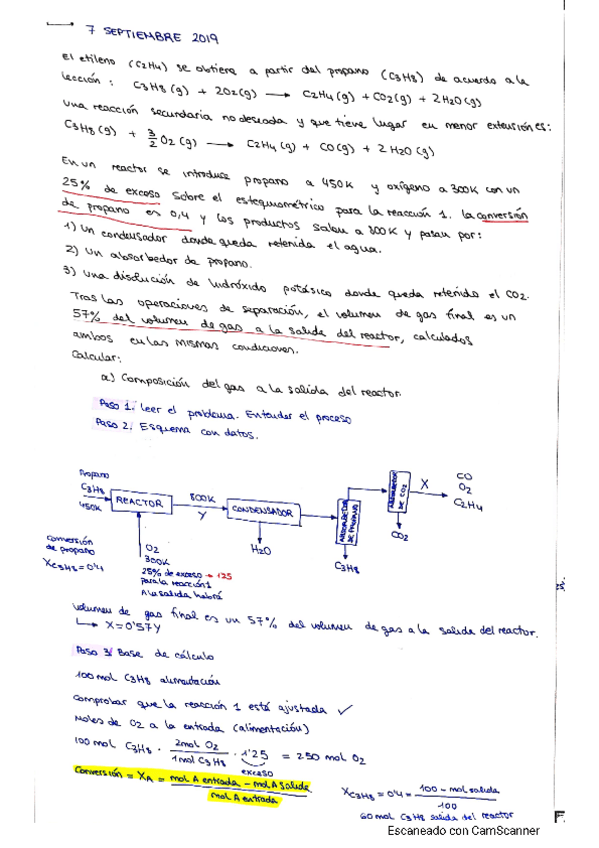 7 SEPTIEMBRE 2019
El etileno (C2H4) se obtiene a partir del propano (C3H8) de acuerdo a la
lección: C3H8 (g) + 2O2(g) → C2H4(g) + CO2(g) + 2H2O(g)
Una reacción secundaria no deseada y que tiene lugar en menor extensión es:
C3H8 (g) + 3/2 O2 (g) → C2H4 (g) + CO(g) + 2 H2O (g)
En un reactor se introduce propano a 450K y oxígeno a 300K con un
25% de exceso sobre el estequiométrico para la reacción 1. la conversión
de propano es 0,4 y los productos salen a 800K y pasan por:
1) Un condensador donde queda retenida el agua.
2) Un absorbedor de propano.
3) Una disolución de hidróxido potásico donde queda retenido el CO2.
Tras las operaciones de separación, el volumen de gas final es un
57% del volumen de gas a la salida del reactor, calculados
ambos en las mismas condiciones.
Calcular:
a) Composición del gas a la salida del reactor.
Paso 1. Leer el problema. Entender el proceso
Paso 2. Esquema con datos.
Propano
C3H8
450K
REACTOR
800K
Y
CONDENSADOR
H2O
ABSORBEDOR DE PROPANO
C3H8
DE CO2
CO2
X
CO
O2
C2H4
Conversión
de propano
XC3H8 = 0'4
O2
300K
25% de exceso → 125
para la reacción 1
A la salida habrá
Volumen de gas final es un 57% del volumen de gas a la salida del reactor.
↳ X = 0'57Y
Paso 3/ Base de cálculo
100 mol C3H8 alimentación
Comprobar que la reacción 1 está ajustada ✓
Moles de O2 a la entrada (alimentación)
100 mol C3H8 · 2mol O2 / 1mol C3H8 · 1'25 = 250 mol O2
exceso
Conversión = XA = mol A entrada - mol A salida / mol A entrada
XC3H8 = 0'4 = 100 - mol salida / 100
60 mol C3H8 salida del reactor
Escaneado con CamScanner